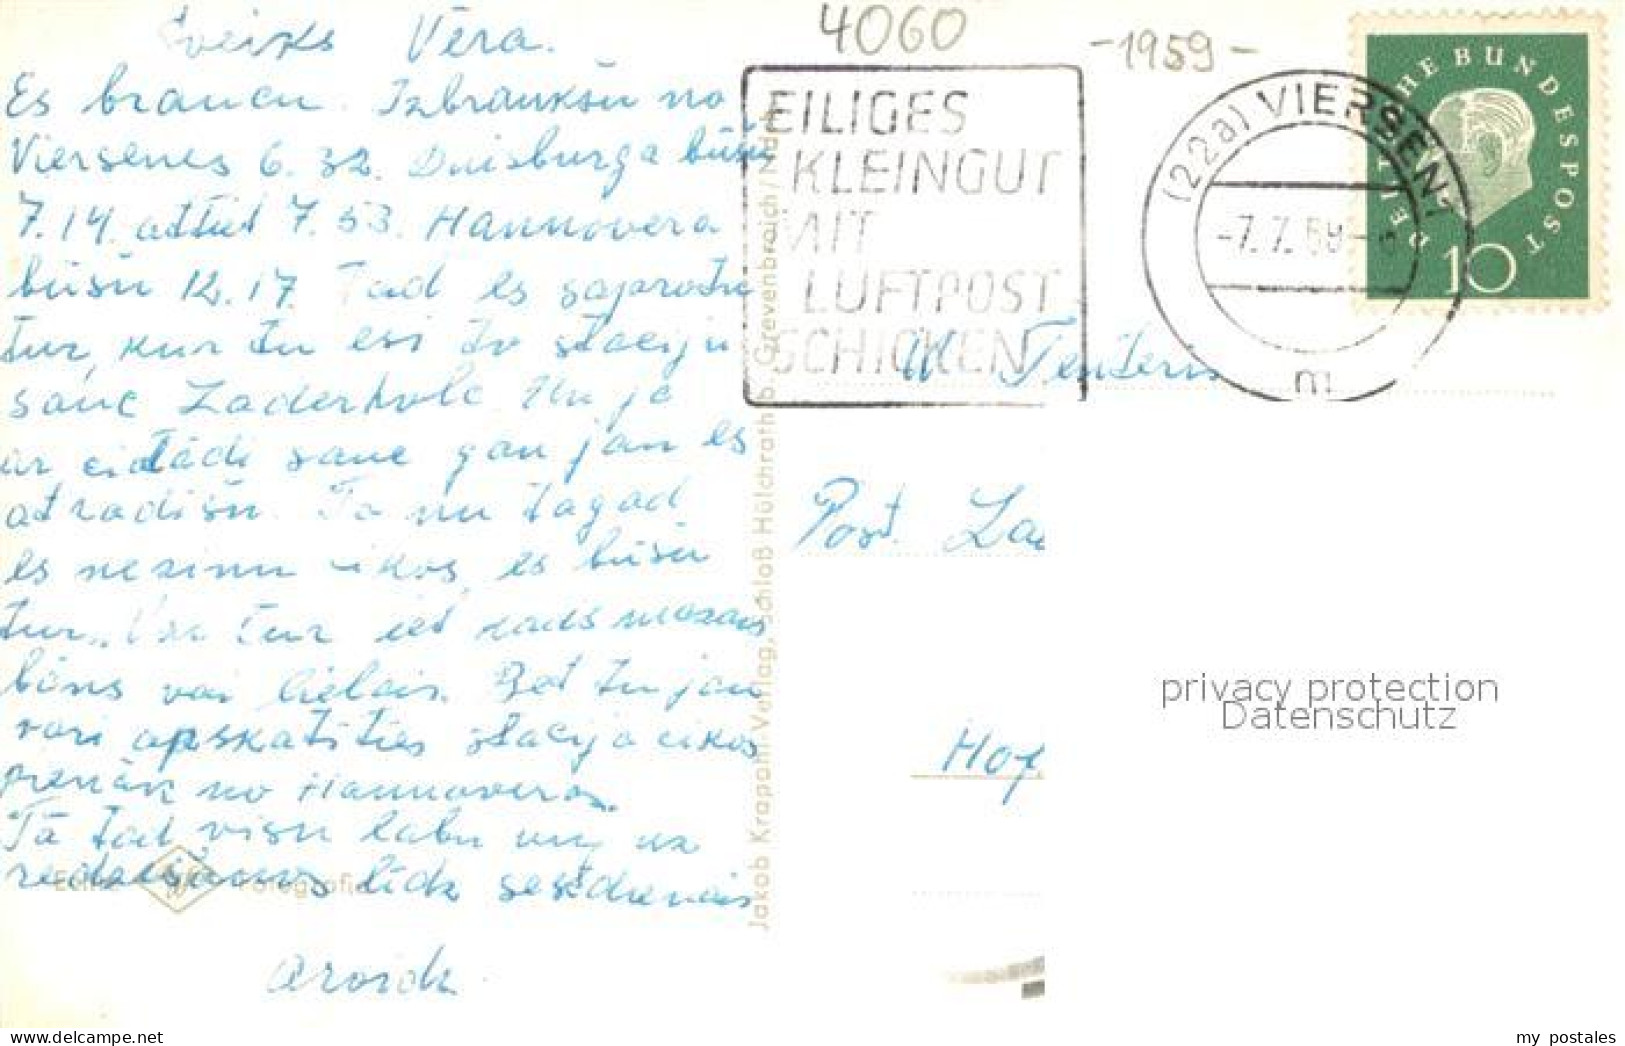 Sveiks Vera.
Es braucu. Izbraukšu no
Viersenes 6.32. Duisburga būšu
7.14. attiet 7.53. Hannovera
būšu 12.17. Tad es saprotu
tur, kur tu esi to staciju
sauc Laderholc. Un ja
ar sauc gan jau es
atradīšu. Tā nu tagad
es nezinu cikos es būšu
tur. Vai tur iet kads mazais
bāns vai lielais. Bet tu jau
vari apskatīties stacija cikos
pienāk no Hannoveras.
Tā tad visu labu un uz
redzēšanos līdz sestdienais
4060
-1959-
EILIGES
KLEINGUT
MIT
LUFTPOST
SCHICKEN
(22a) VIERSEN 1
-7.7.59-
m
DEUTSCHE BUNDESPOST
10
Post. La
Hof
Jakob Krapohl-Verlag, Schloß Hülchrath b. Grevenbroich/Ndrh.
Fotografie
privacy protection
Datenschutz
delcampe.net
my_postales